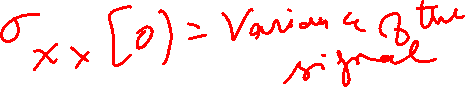 σxx[0) = Variance of the
signal